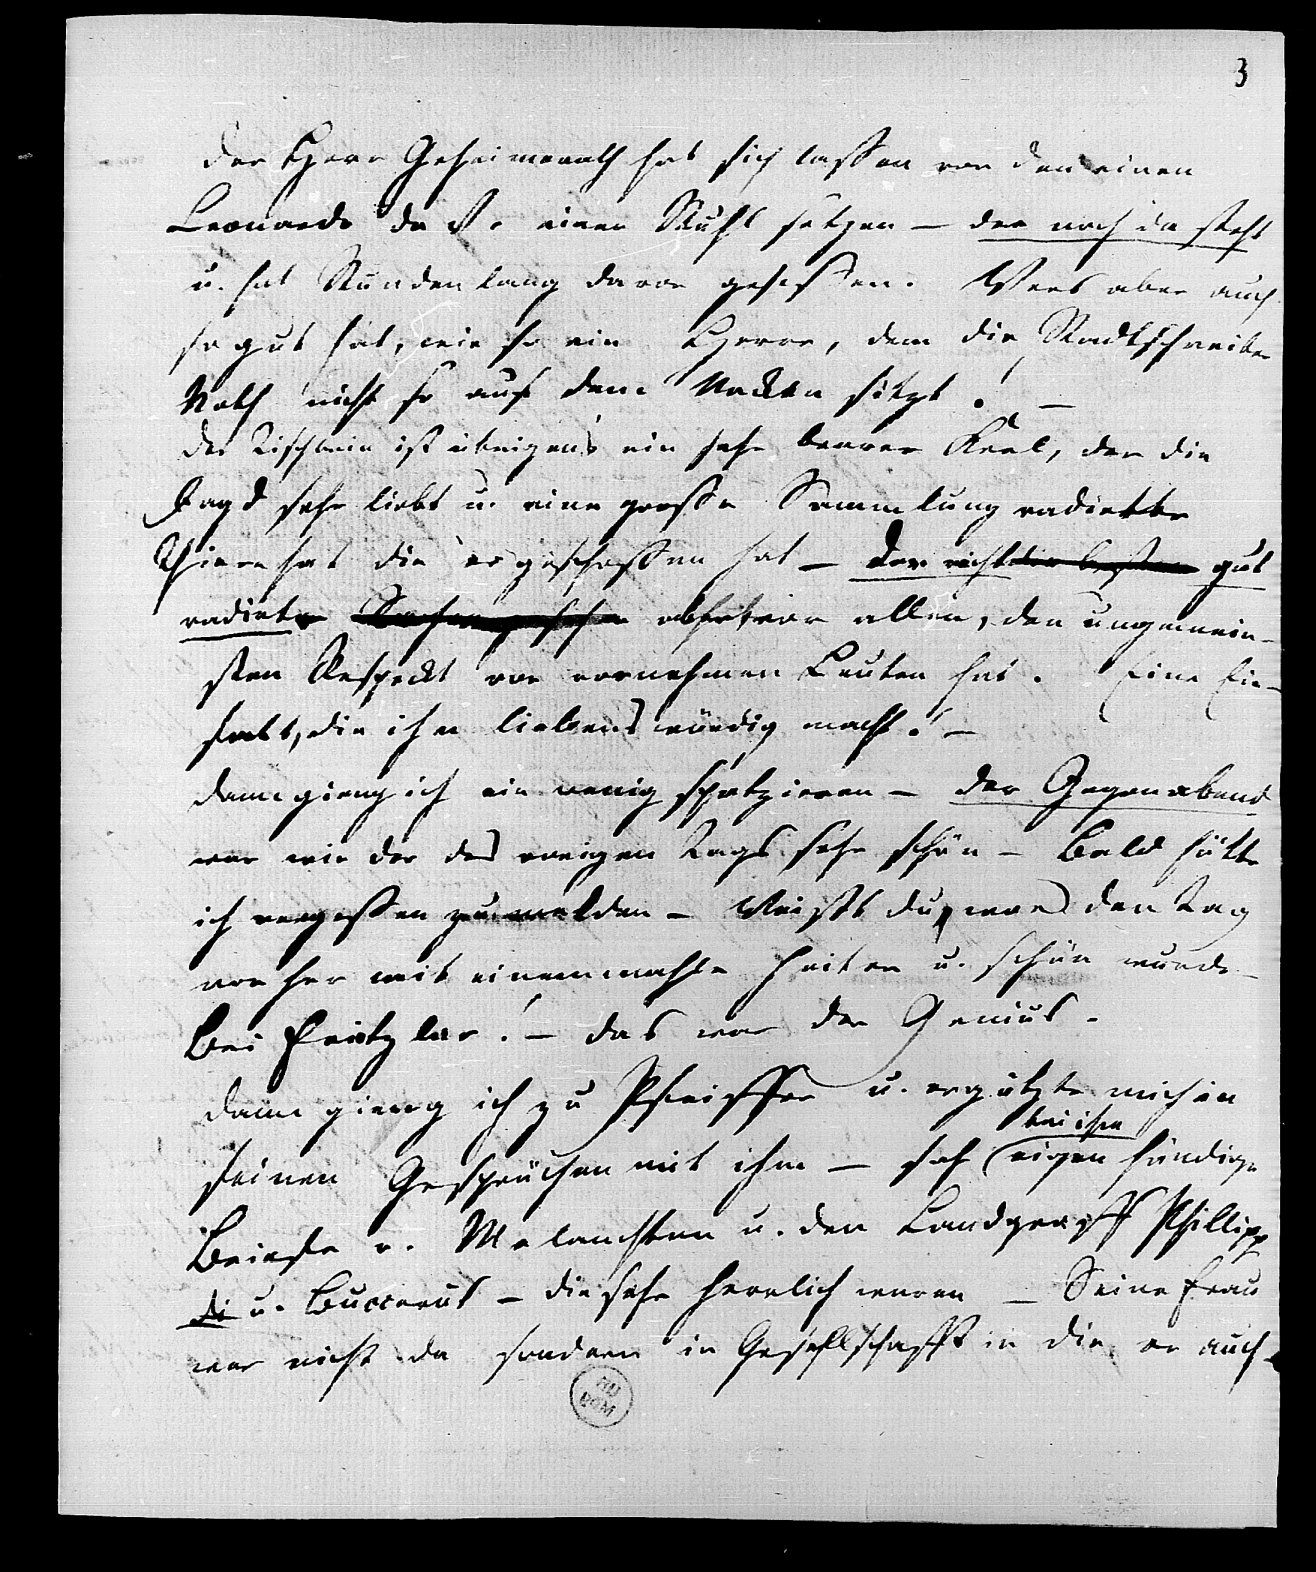 3
der Herr Geheimerath hat sich lassen vor den einen
Leonardo da V. einen Stuhl setzen – der noch da steht
u. hat Stundenlang davor gesessen. Wers aber auch
so gut hat, wie so ein Herr, dem die Stadtschreiber
Noth nicht so auf dem Nacken sitzt! –
der Tischbein ist übrigens ein sehr braver Kerl, der die
Jagd sehr liebt u. eine grosse Sammlung radirter
Thiere hat die er geschossen hat – der nicht gut
radirt aber vor allen, den ungemein-
sten Respeckt vor vornehmen Leuten hat. Eine Ein-
falt, die ihn liebenswürdig macht! –
dann gieng ich ein wenig spatzieren – der Gegenabend
war wie der des vorigen Tags sehr schön – Bald hätte
ich vergessen zu melden – Weists du, wars den Tag
vorher mit einemmahle heiter u. schön wurde
Bei Fritzlar! – das war der Genius.
dann gieng ich zu Pfeiffer u. ergötzte mich in
seinen Gesprächen mit ihm – sah eigenhändige
bei ihm
Briefe v. Melanchton u. den Landgraff Phillipp
di u. Buccerus – die sehr herrlich waren – Seine Frau
war nicht da sondern in Gesellschafft in die er auch